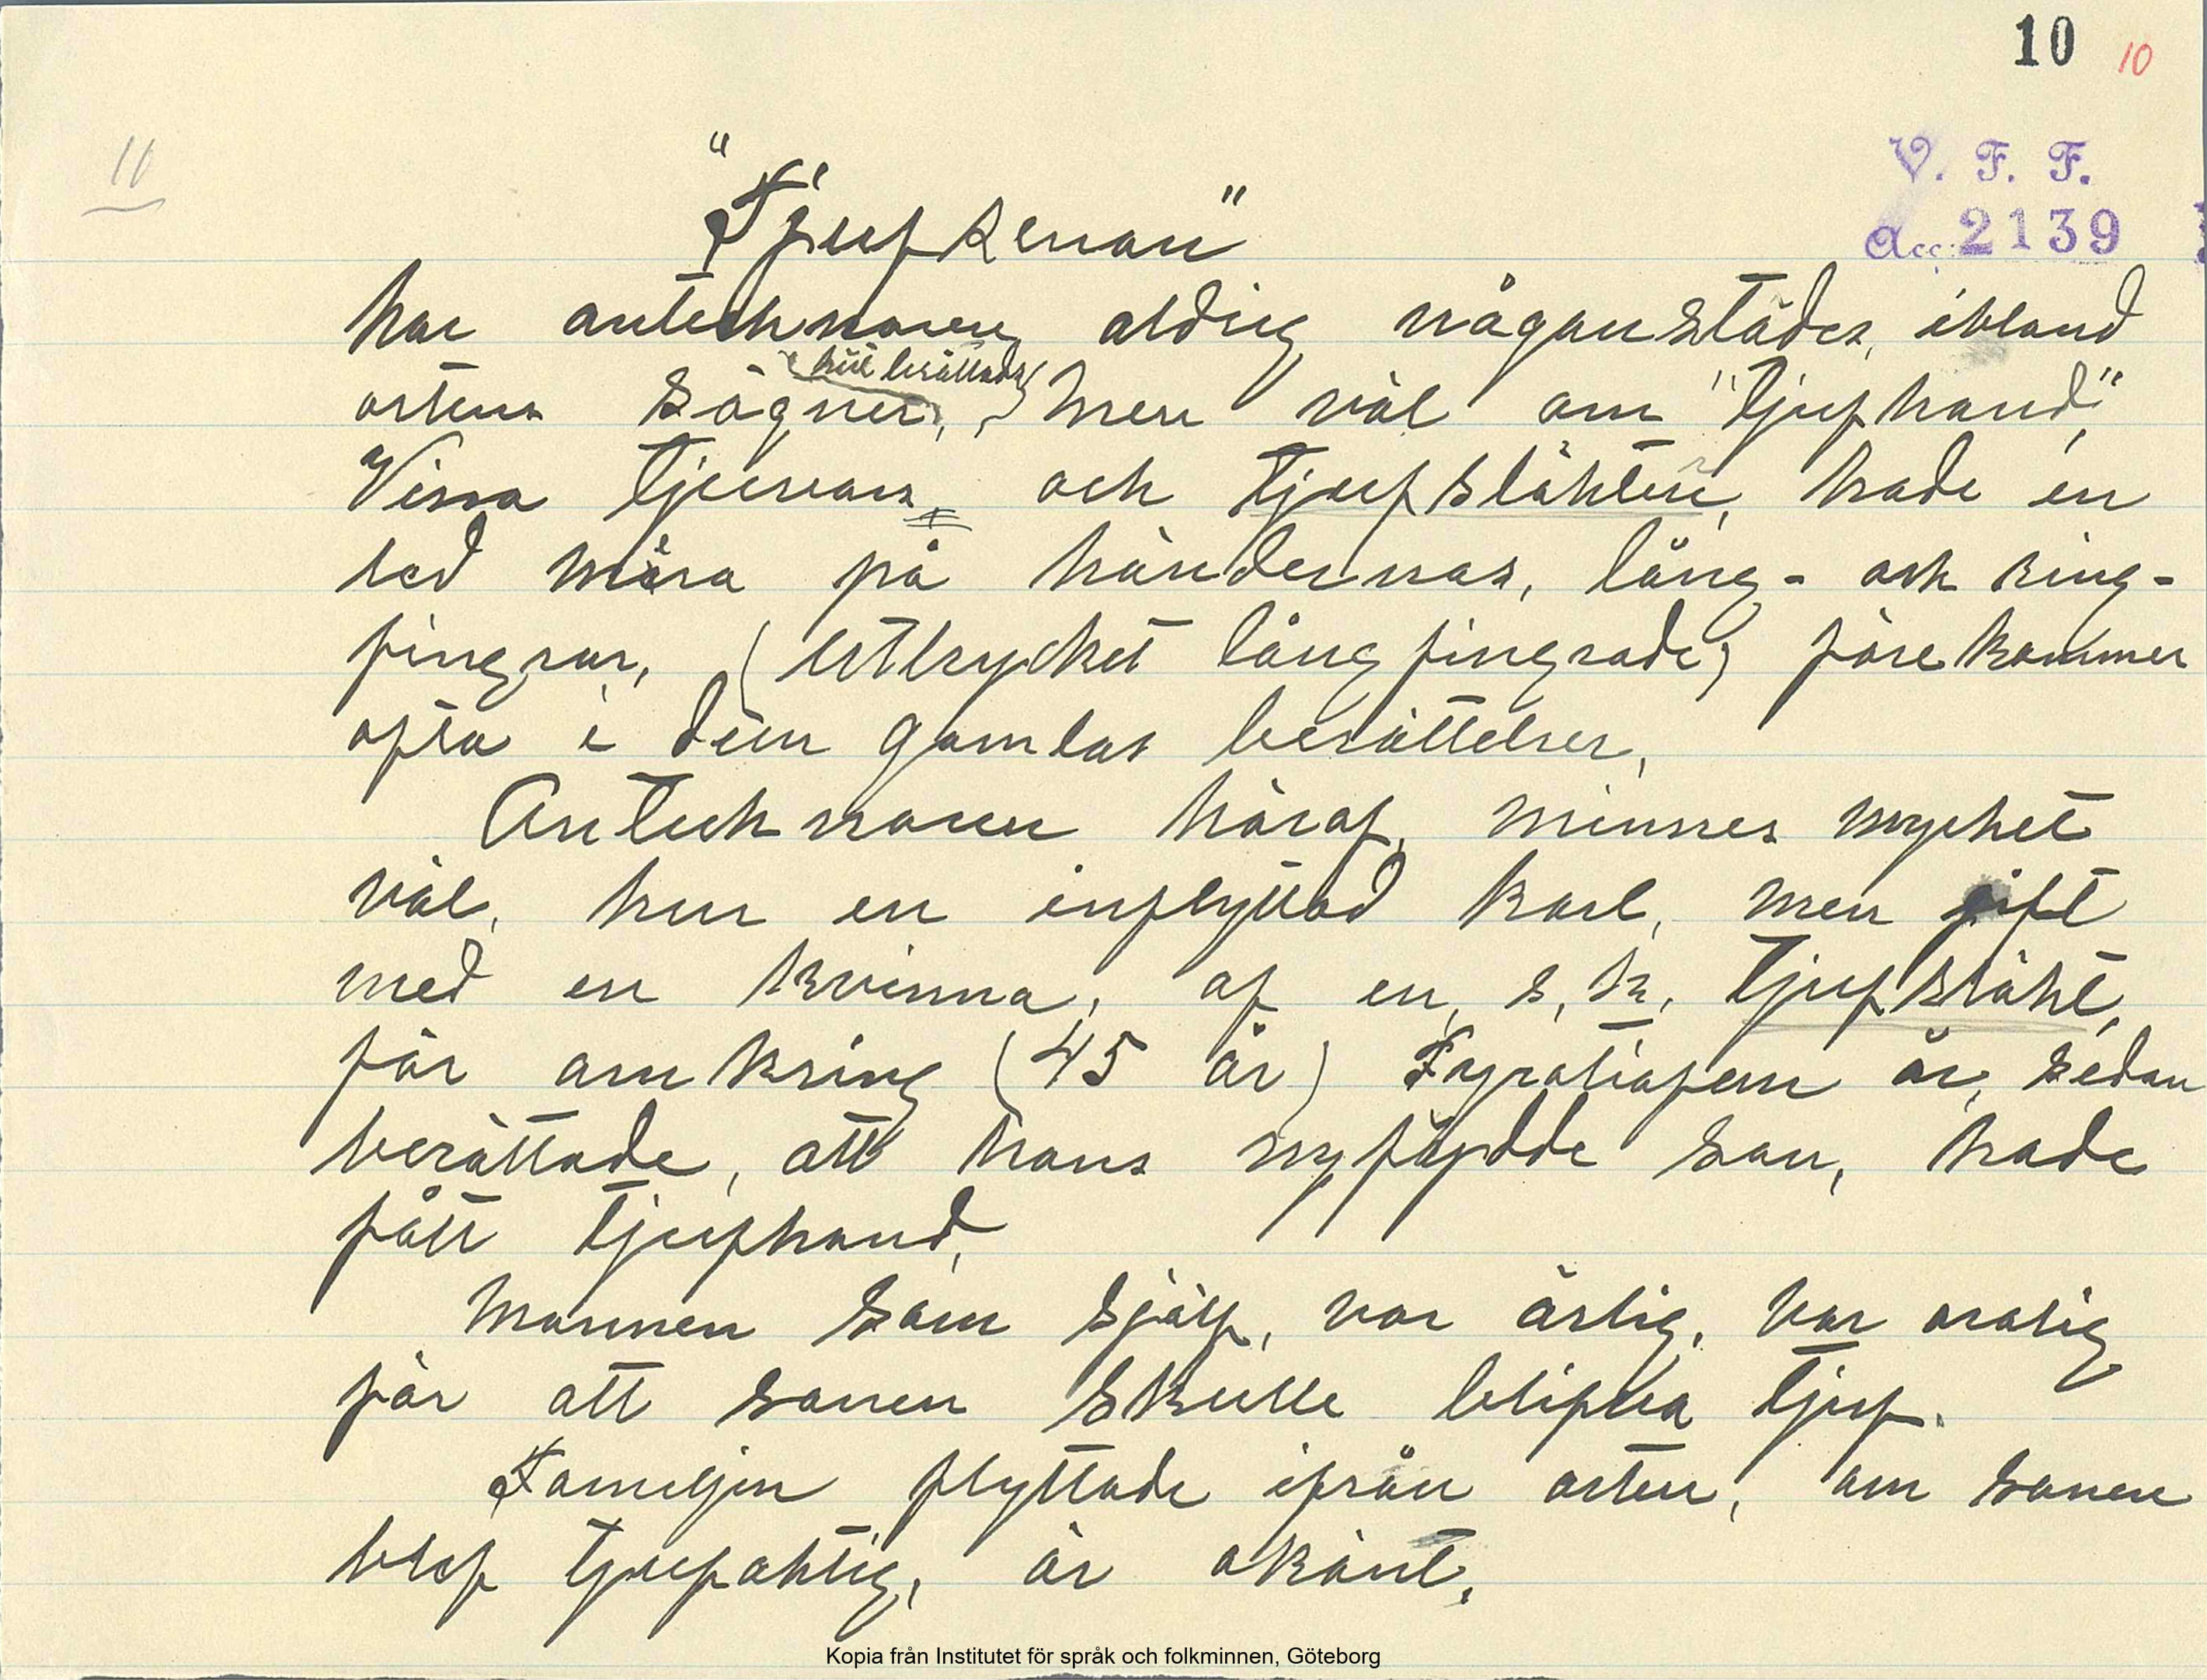 10 10
11
V. F. F.
Acc. 2139
"Tjufkenan"
har antecknaren aldrig någonstädes, ibland
ortens sägner, hört berättas, men väl om "tjufhand",
Vissa tjuvars, och tjufsläkter, hade en
led mera på händernas, lång- och ring-
fingrar, (uttrycket långfingrade) förekommer
ofta i dem gamlas berättelser,
Antecknaren häraf, minnes mycket
väl, hur en inflyttad karl, men gift
med en kvinna, af en, s, k, tjufsläkt,
för omkring (45 år) Fyratiofem år, sedan
berättade, att hans nyfödde son, hade
fått tjufhand,
Mannen som sjelf, var ärlig, var orolig
för att sonen skulle blifva tjuf.
Familjen flyttade ifrån orten, om sonen
blef tjufaktig, är okänt,
Kopia från Institutet för språk och folkminnen, Göteborg